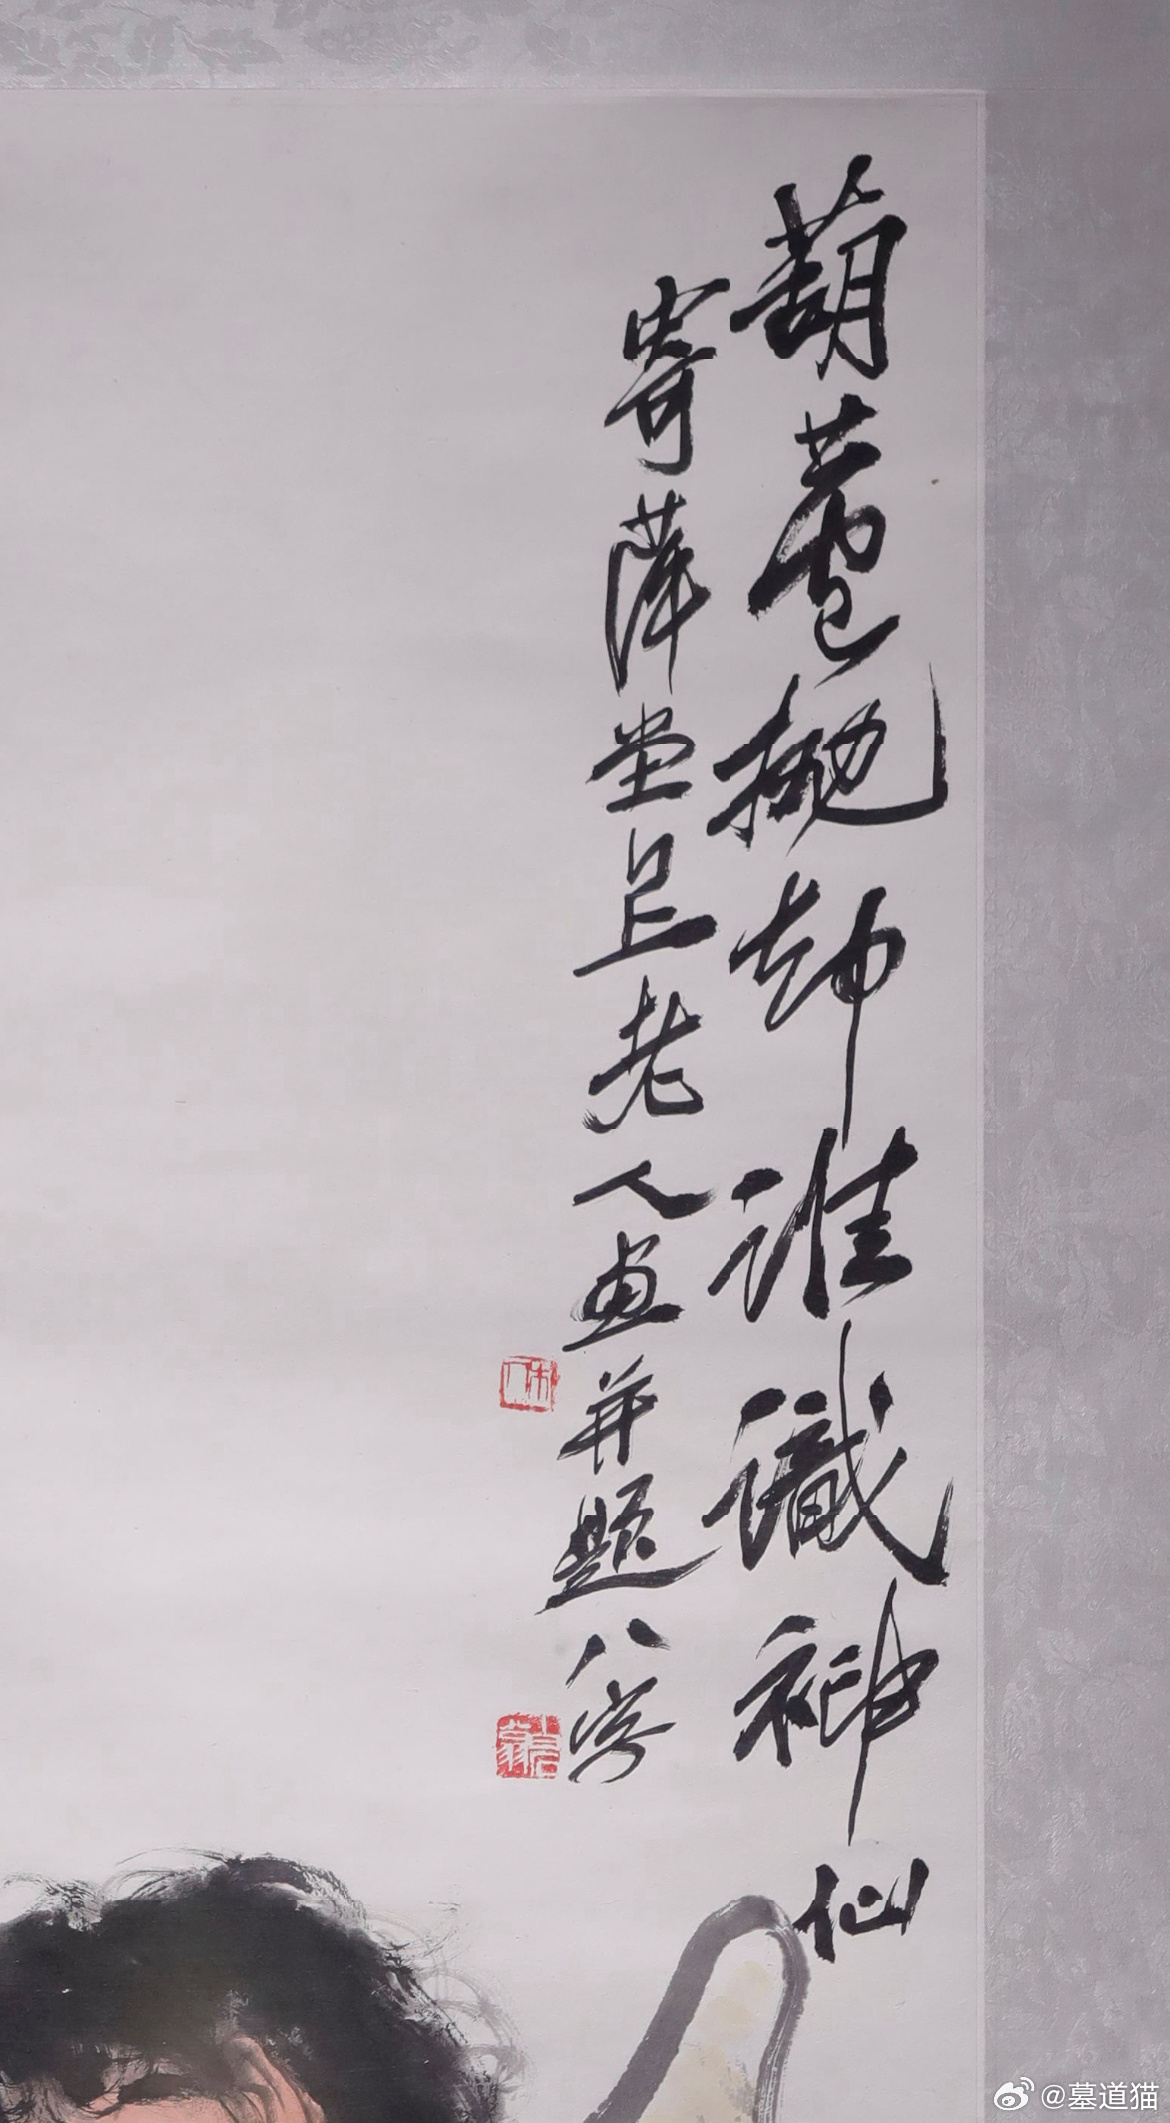 葫蘆拋却誰識神仙
寄萍堂上老人画并題八字
木人
@墓道猫